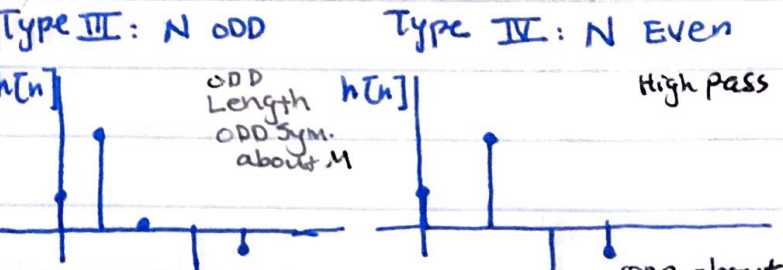 Type III: N ODD
h[n]
ODD
Length
ODD Sym.
about M
Type IV: N Even
h[n]
High pass